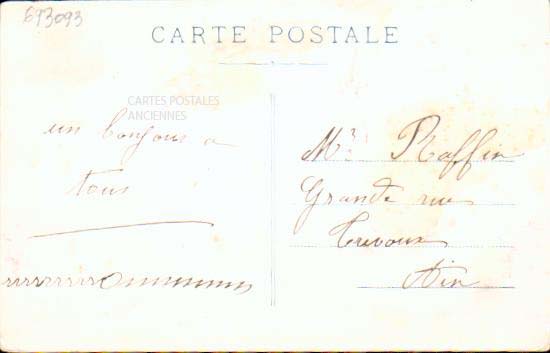 693093
CARTE POSTALE
CARTES POSTALES
ANCIENNES
un bonjour a
tous
Mr Raffin
Grande rue
Trevoux
Ain